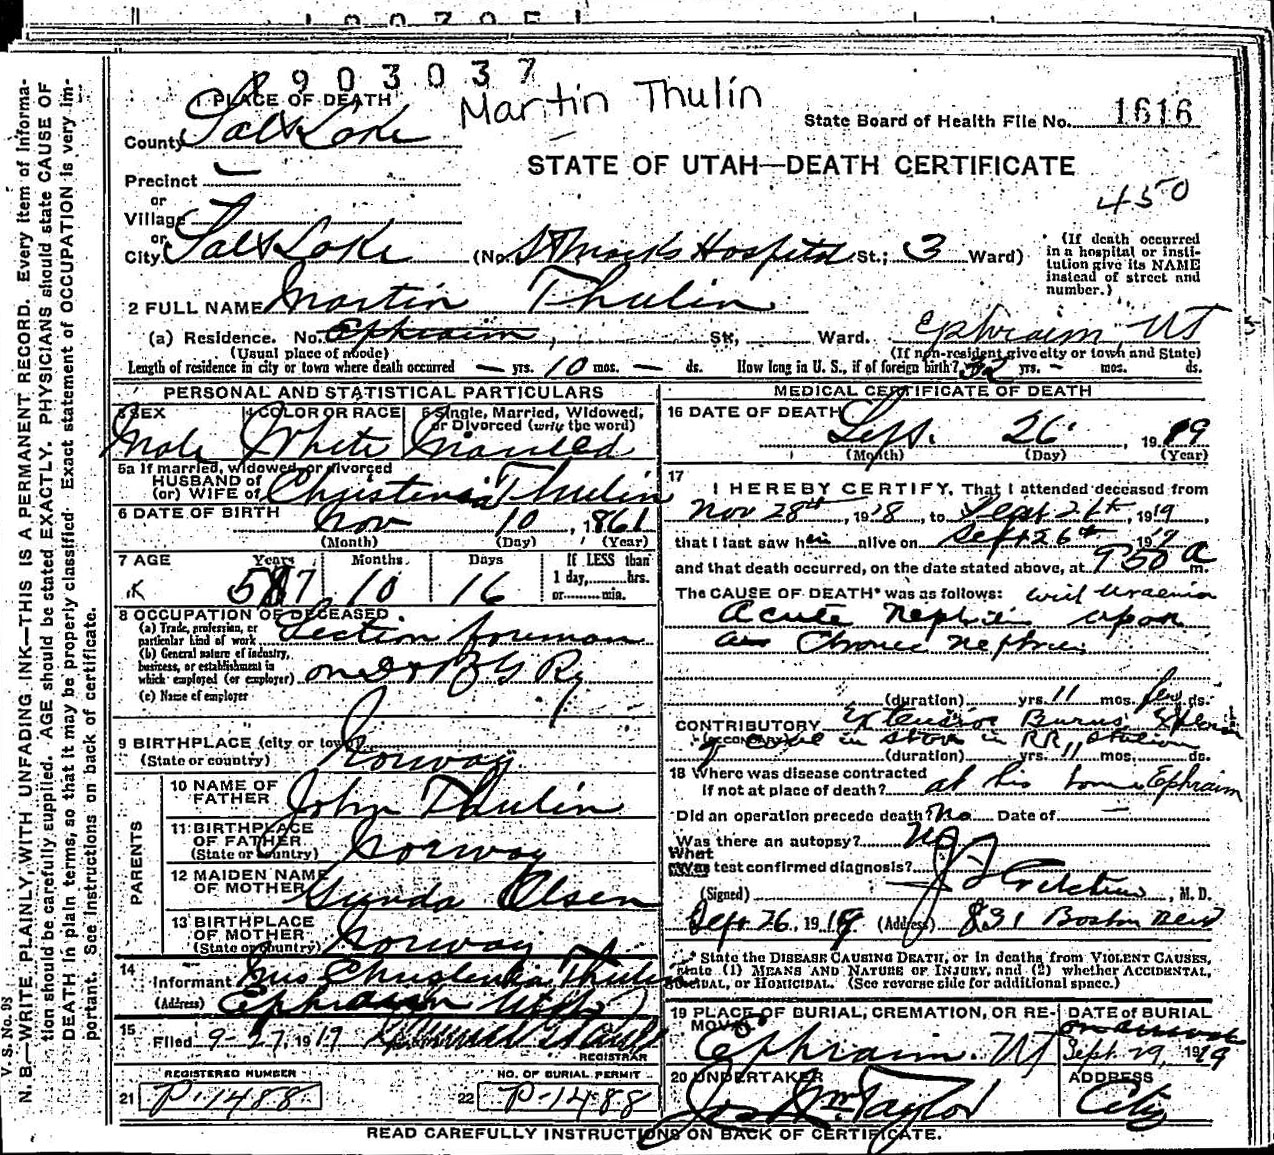 903037
Martin Thulin
1 PLACE OF DEATH
State Board of Health File No. 1616
County Salt Lake
STATE OF UTAH—DEATH CERTIFICATE
Precinct —
450
or
Village
or
City Salt Lake (No. St Marks Hospital St.; 3 Ward)
(If death occurred in a hospital or institution give its NAME instead of street and number.)
2 FULL NAME Martin Thulin
(a) Residence. No. Ephraim, St., Ward. Ephraim, Ut
(Usual place of abode) (If non-resident give city or town and State)
Length of residence in city or town where death occurred — yrs. 10 mos. — ds. How long in U. S., if of foreign birth? 32 yrs. — mos. ds.
PERSONAL AND STATISTICAL PARTICULARS
3 SEX 4 COLOR OR RACE 5 Single, Married, Widowed, or Divorced (write the word)
Male White Married
5a If married, widowed, or divorced
HUSBAND of
(or) WIFE of Christena Thulin
6 DATE OF BIRTH Nov 10, 1861
(Month) (Day) (Year)
7 AGE Years Months Days If LESS than
57 10 16 1 day, hrs.
or min.
8 OCCUPATION OF DECEASED
(a) Trade, profession, or particular kind of work Section foreman
(b) General nature of industry, business, or establishment in which employed (or employer) on D & R G Ry
(c) Name of employer
9 BIRTHPLACE (city or town)
(State or country) Norway
PARENTS
10 NAME OF FATHER John Thulin
11 BIRTHPLACE OF FATHER
(State or country) Norway
12 MAIDEN NAME OF MOTHER Gunda Olsen
13 BIRTHPLACE OF MOTHER
(State or country) Norway
14
Informant Mrs Christena Thulin
(Address) Ephraim Utah
15
Filed 9-27, 1919
REGISTRAR
REGISTERED NUMBER NO. OF BURIAL PERMIT
21 P-1488 22 P-1488
MEDICAL CERTIFICATE OF DEATH
16 DATE OF DEATH
Sept. 26, 1919
(Month) (Day) (Year)
17
I HEREBY CERTIFY, That I attended deceased from
Nov 28th, 1918, to Sept 26th, 1919,
that I last saw him alive on Sept 26th 19
and that death occurred, on the date stated above, at 9:50 a m.
The CAUSE OF DEATH* was as follows: with Uraemia
Acute Nephritis upon
a Chronic Nephritis
(duration) yrs. 11 mos. few ds.
CONTRIBUTORY Extensive Burns
(Secondary) in stove in RR station
(duration) yrs. 11 mos. ds.
18 Where was disease contracted
if not at place of death? at his home Ephraim
Did an operation precede death? No Date of —
Was there an autopsy? No
What test confirmed diagnosis?
(Signed) , M. D.
Sept 26, 1919 (Address) 831 Boston Bldg
* State the DISEASE CAUSING DEATH, or in deaths from VIOLENT CAUSES, state (1) MEANS AND NATURE OF INJURY, and (2) whether ACCIDENTAL, SUICIDAL, OR HOMICIDAL. (See reverse side for additional space.)
19 PLACE OF BURIAL, CREMATION, OR REMOVAL DATE of BURIAL
Ephraim. Ut Sept. 29, 1919
20 UNDERTAKER ADDRESS
Jos Wm. Taylor City
READ CAREFULLY INSTRUCTIONS ON BACK OF CERTIFICATE.
V. S. No. 98
N. B.—WRITE PLAINLY, WITH UNFADING INK—THIS IS A PERMANENT RECORD. Every item of information should be carefully supplied. AGE should be stated EXACTLY. PHYSICIANS should state CAUSE OF DEATH in plain terms, so that it may be properly classified. Exact statement of OCCUPATION is very important. See instructions on back of certificate.